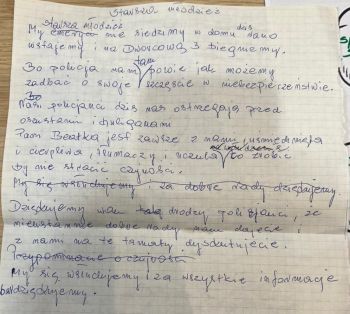 Starsza młodzież
Starsza młodzież dziś
My emeryci nie siedzimy w domu rano
wstajemy i na Dworcową 3 biegniemy.
tam
Bo policja nam powie jak możemy
zadbać o swoje szczęście w niebezpieczeństwie.
Bo
Nasi policjanci dziś nas ostrzegają przed
oszustami i chuliganami
Pani Beatka jest zawsze z nami, uśmiechnięta
i cierpliwa, tłumaczy i uczula co zrobić
by nie stracić czujności.
My się wsłuchujemy i za dobre rady dziękujemy.
Dziękujemy wam drodzy policjanci, że
nieustannie dobre rady nam dajecie i
z nami na te tematy dyskutujecie.
Przypominanie o czujności
My się wsłuchujemy i za wszystkie informacje
bardzo dziękujemy.